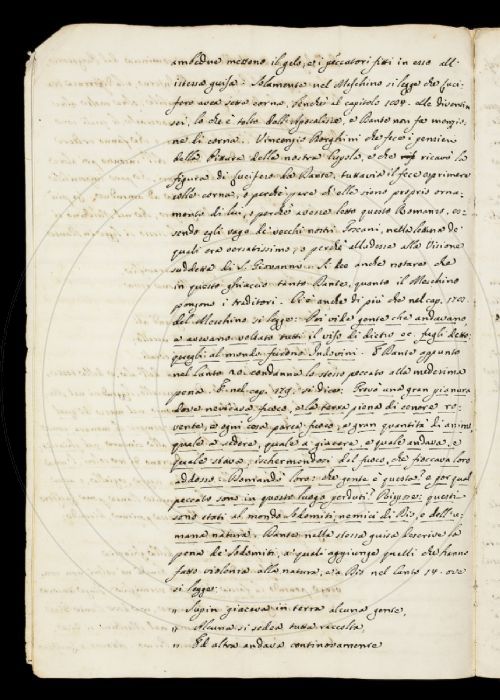 ambedue messono il gelo, e i peccatori fitti in esso all'
istessa guisa. Solamente nel Meschino si legge che Luci-
fero avea sette corna, benchè al capitolo 184. alle diventin
sei, lo che è tolto dall'Apocalisse, e Dante non fa menzio-
ne di corna. Vincenzio Borghini che fece i pensieri
della Pittura della nostra Cupola, e che ricavò la
figura di Lucifero da Dante, tuttavia il fece esprimere
colle corna, o perchè pare ch'elle sieno proprio orna-
mento di lui, o perchè avesse letto questo Romanzo, es-
sendo egli vago de' vecchi nostri Toscani, nella lettura de'
quali era versatissimo, o perchè alludesse alla Visione
suddetta di S. Giovanni. Si dee anche notare che
in questo ghiaccio tanto Dante, quanto il Meschino
pongono i traditori. Ci è anche di più che nel cap.
del Meschino si legge: Poi vide gente che andavano
e aveano voltato tutti il viso di dietro ec. fugli detto:
quegli al mondo furono Indovini. E Dante appunto
nel Canto 20. condanna lo stesso peccato alla medesima
pena. E nel cap. 179. si dice: Trovò una gran pianura
dove nevicava fuoco, e la terra piena di cenere ro-
vente, e ogni cosa parea fuoco, e gran quantità di anime
quale a sedere, quale a giacere, e quale andava, e
quale stava, ischermendosi dal fuoco, che fioccava loro
addosso. Domandò loro: che gente è questa? e per qual
peccato sono in questo luogo perduti? Rispose: questi
sono stati al mondo Sodomiti, nemici di Dio, e dell'u-
mana natura. Dante nella stessa guisa descrive la
pena de' Sodomiti, a' quali aggiunge quelli che hanno
fatto violenza alla natura, e a Dio nel Canto 14. ove
si legge:
" Supin giaceva in terra alcuna gente,
" Alcuna si sedea tutta raccolta,
" Ed altra andava continovamente